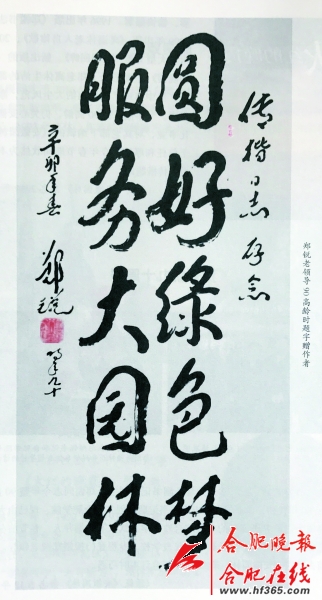 郑锐老领导90高龄时题字赠作者
传楷同志 存念
圆好绿色梦
服务大园林
辛卯年春 郑锐 时年九十
合肥晚報
合肥在线
www.hf365.com